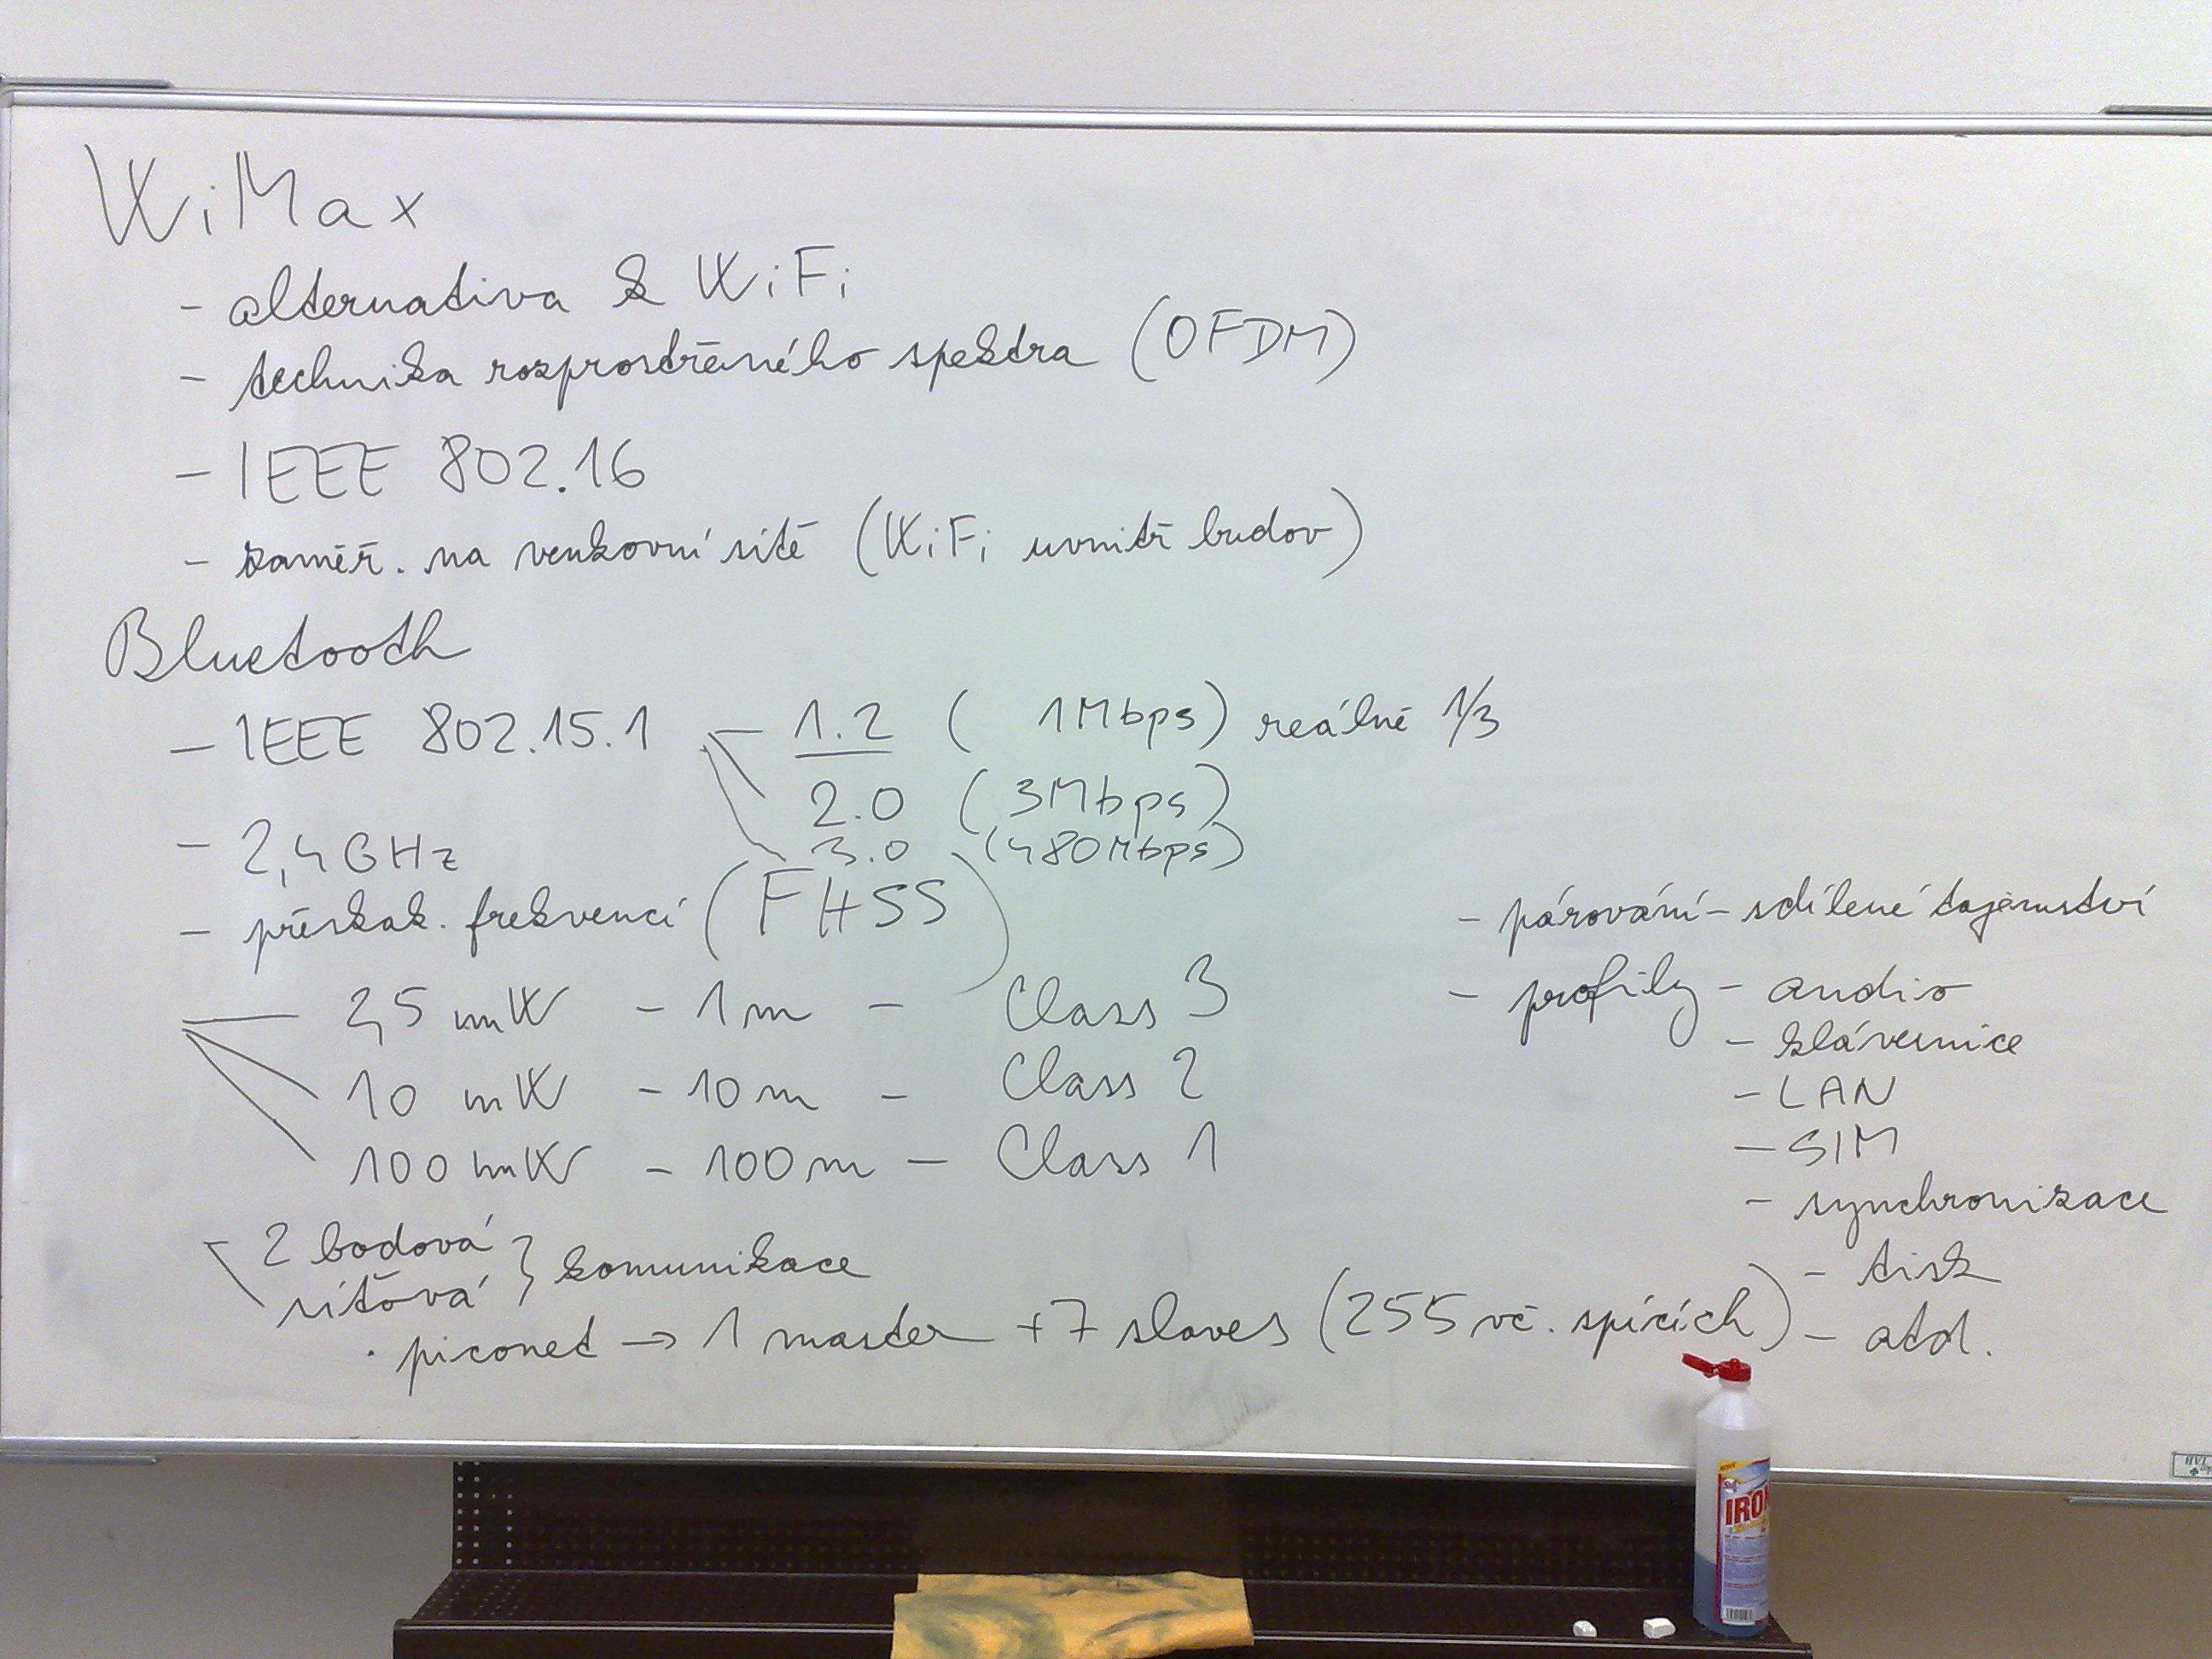 WiMax
- alternativa k WiFi
- technika rozprostřeného spektra (OFDM)
- IEEE 802.16
- zaměř. na venkovní sítě (WiFi uvnitř budov)
Bluetooth
- IEEE 802.15.1 - 1.2 ( 1Mbps) reálně 1/3
2.0 (3Mbps)
3.0 (480Mbps)
- 2,4GHz
- přeskak. frekvencí (FHSS)
2,5 mW - 1m - Class 3
10 mW - 10m - Class 2
100 mW - 100m - Class 1
- 2 bodová } komunikace
síťová
· piconet → 1 master +7 slaves (255 vč. spících)
- párování - sdílené tajemství
- profily - audio
- klávesnice
- LAN
- SIM
- synchronizace
- tisk
- atd.
IRON